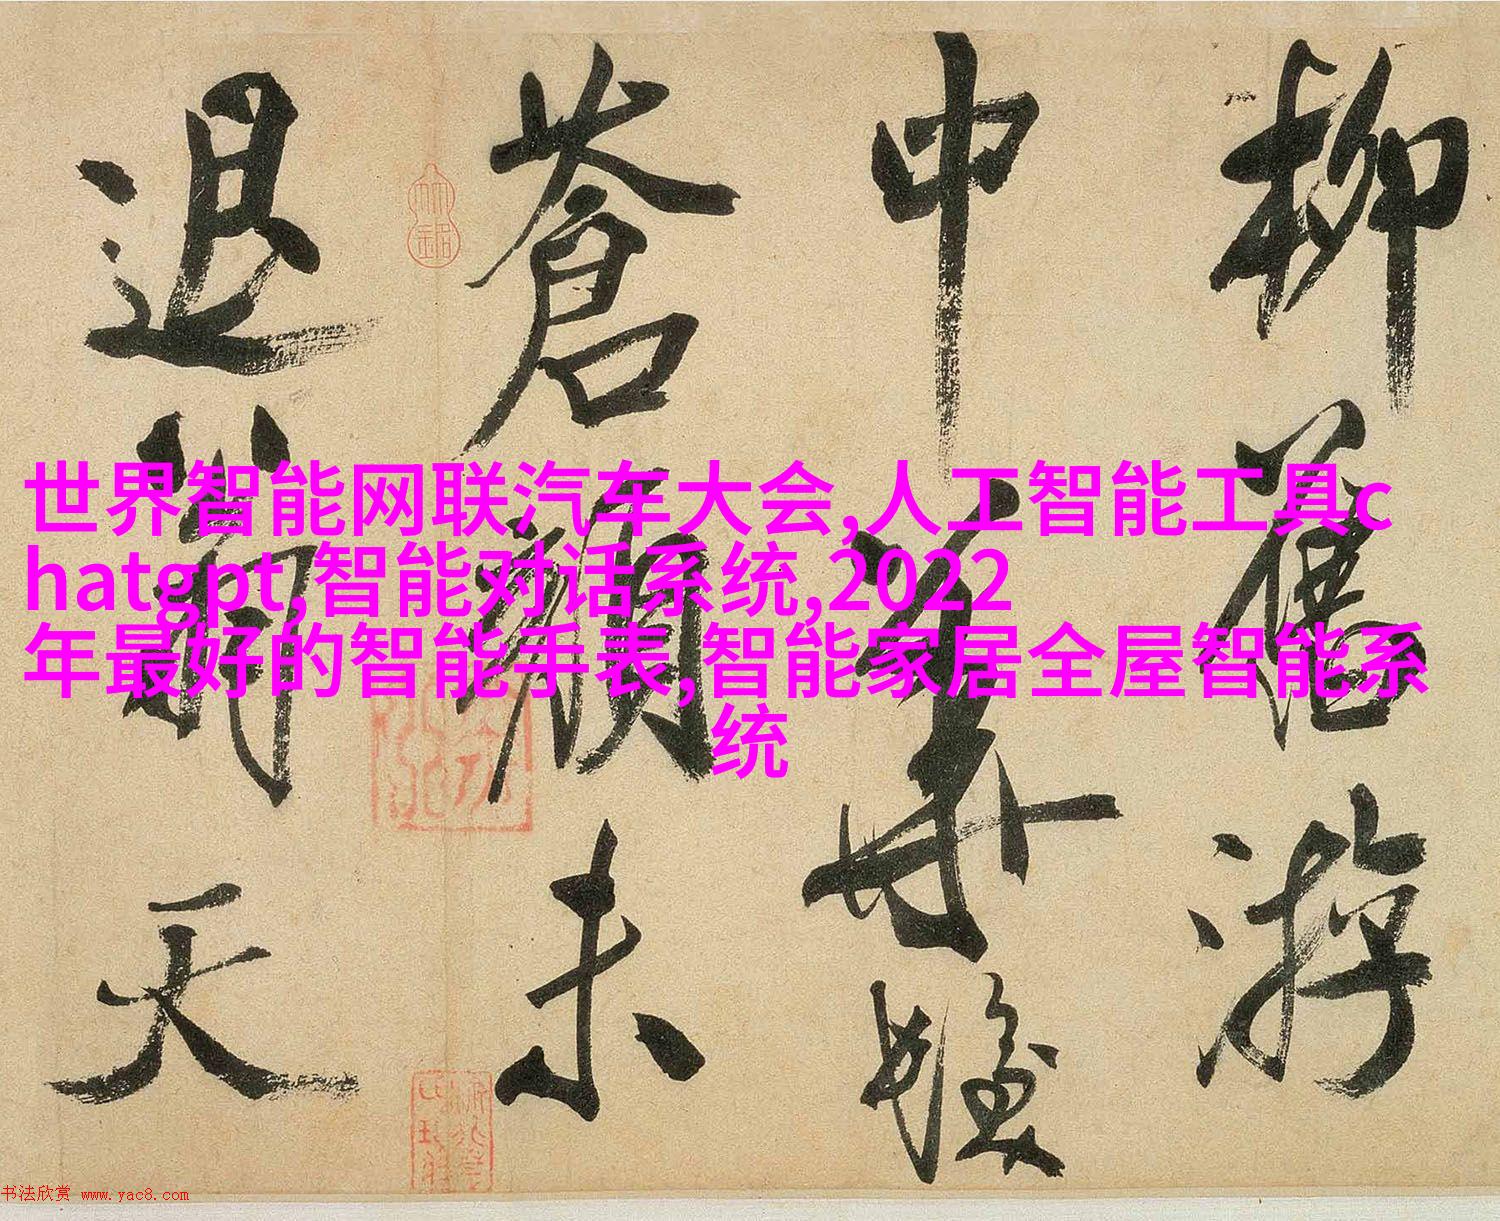 世界智能网联汽车大会,人工智能工具c
hatgpt,智能对话系统,2022
年最好的智能手表,智能家居全屋智能系
统
柳舊游
中
蒼顏未
退天
书法欣赏 www.yac8.com